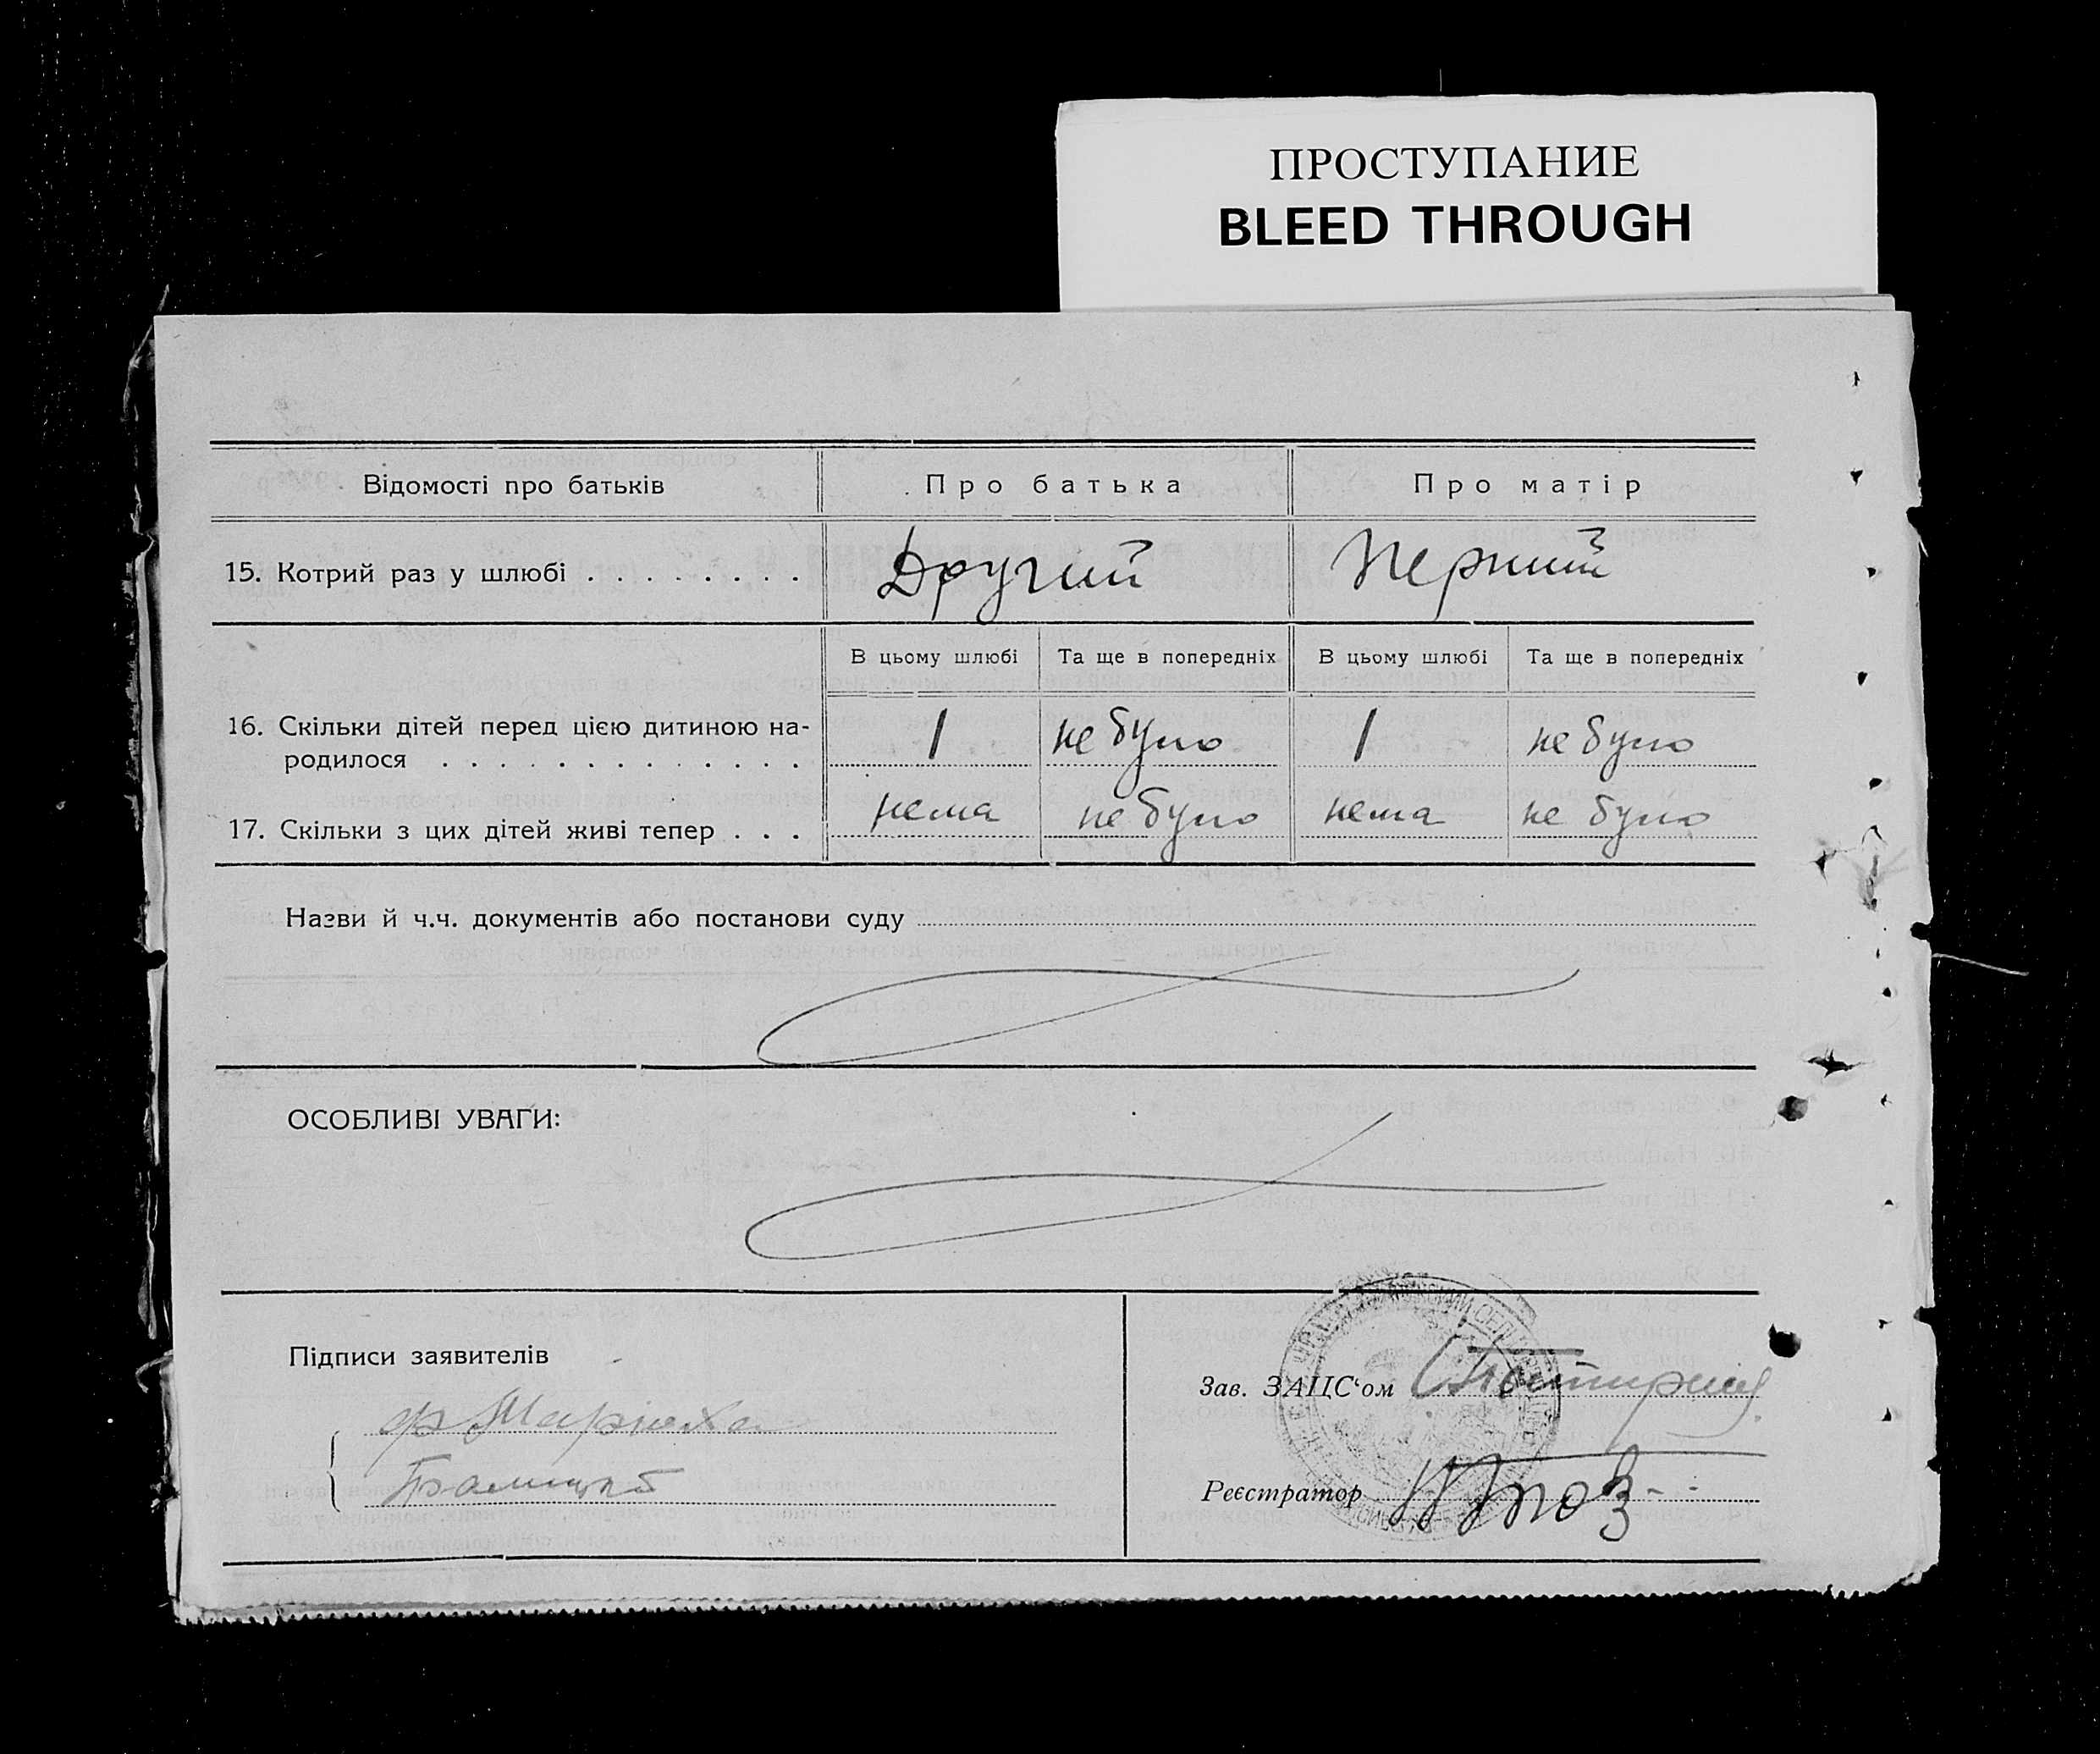 ПРОСТУПАНИЕ
BLEED THROUGH
Відомості про батьків Про батька Про матір
15. Котрий раз у шлюбі . . . . . . . . Другий Перший
В цьому шлюбі Та ще в попередніх В цьому шлюбі Та ще в попередніх
16. Скільки дітей перед цією дитиною на-
родилося . . . . . . . . . . . . . 1 не було 1 не було
17. Скільки з цих дітей живі тепер . . . нема не було нема не було
Назви й ч.ч. документів або постанови суду
ОСОБЛИВІ УВАГИ:
Підписи заявителів
Зав. ЗАЦС‘ом
Реєстратор